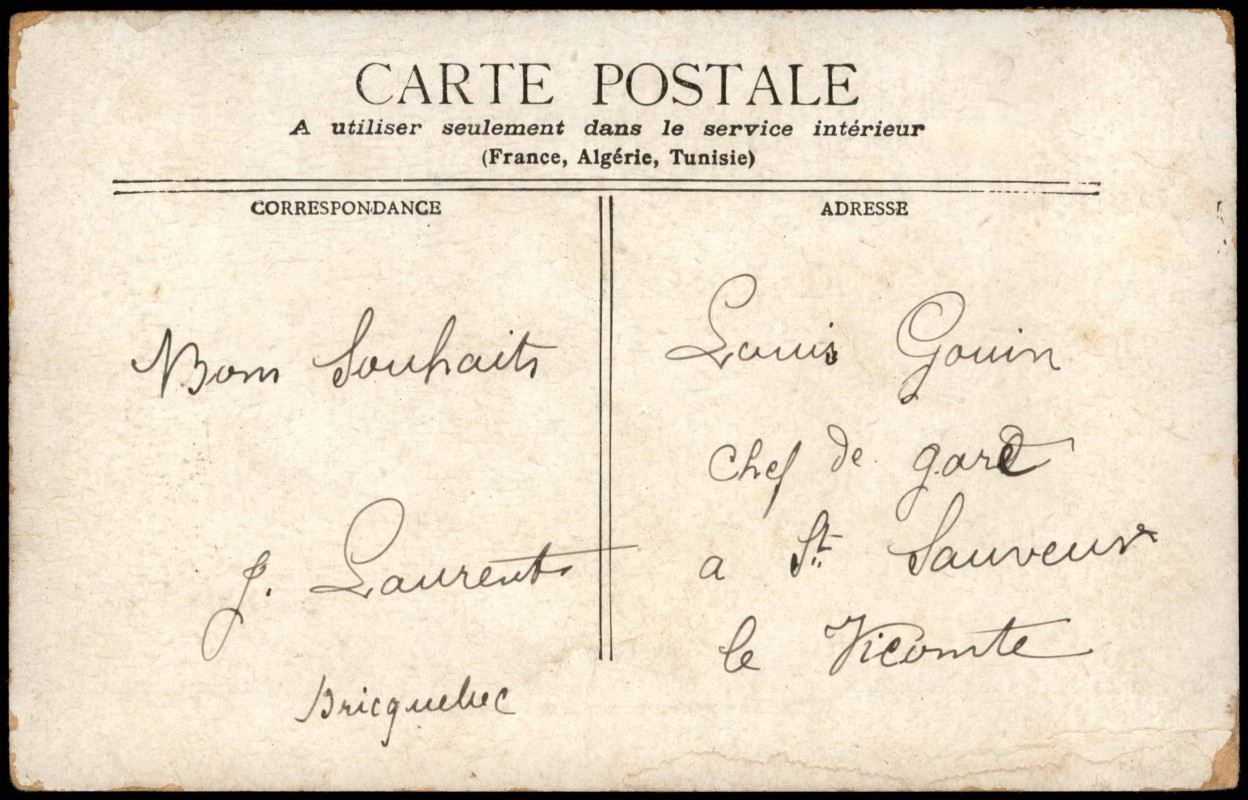 CARTE POSTALE
A utiliser seulement dans le service intérieur
(France, Algérie, Tunisie)
CORRESPONDANCE
Bons Souhaits
J. Laurent
Bricquebec
ADRESSE
Louis Gouin
Chef de gare
a St. Sauveur
le Vicomte